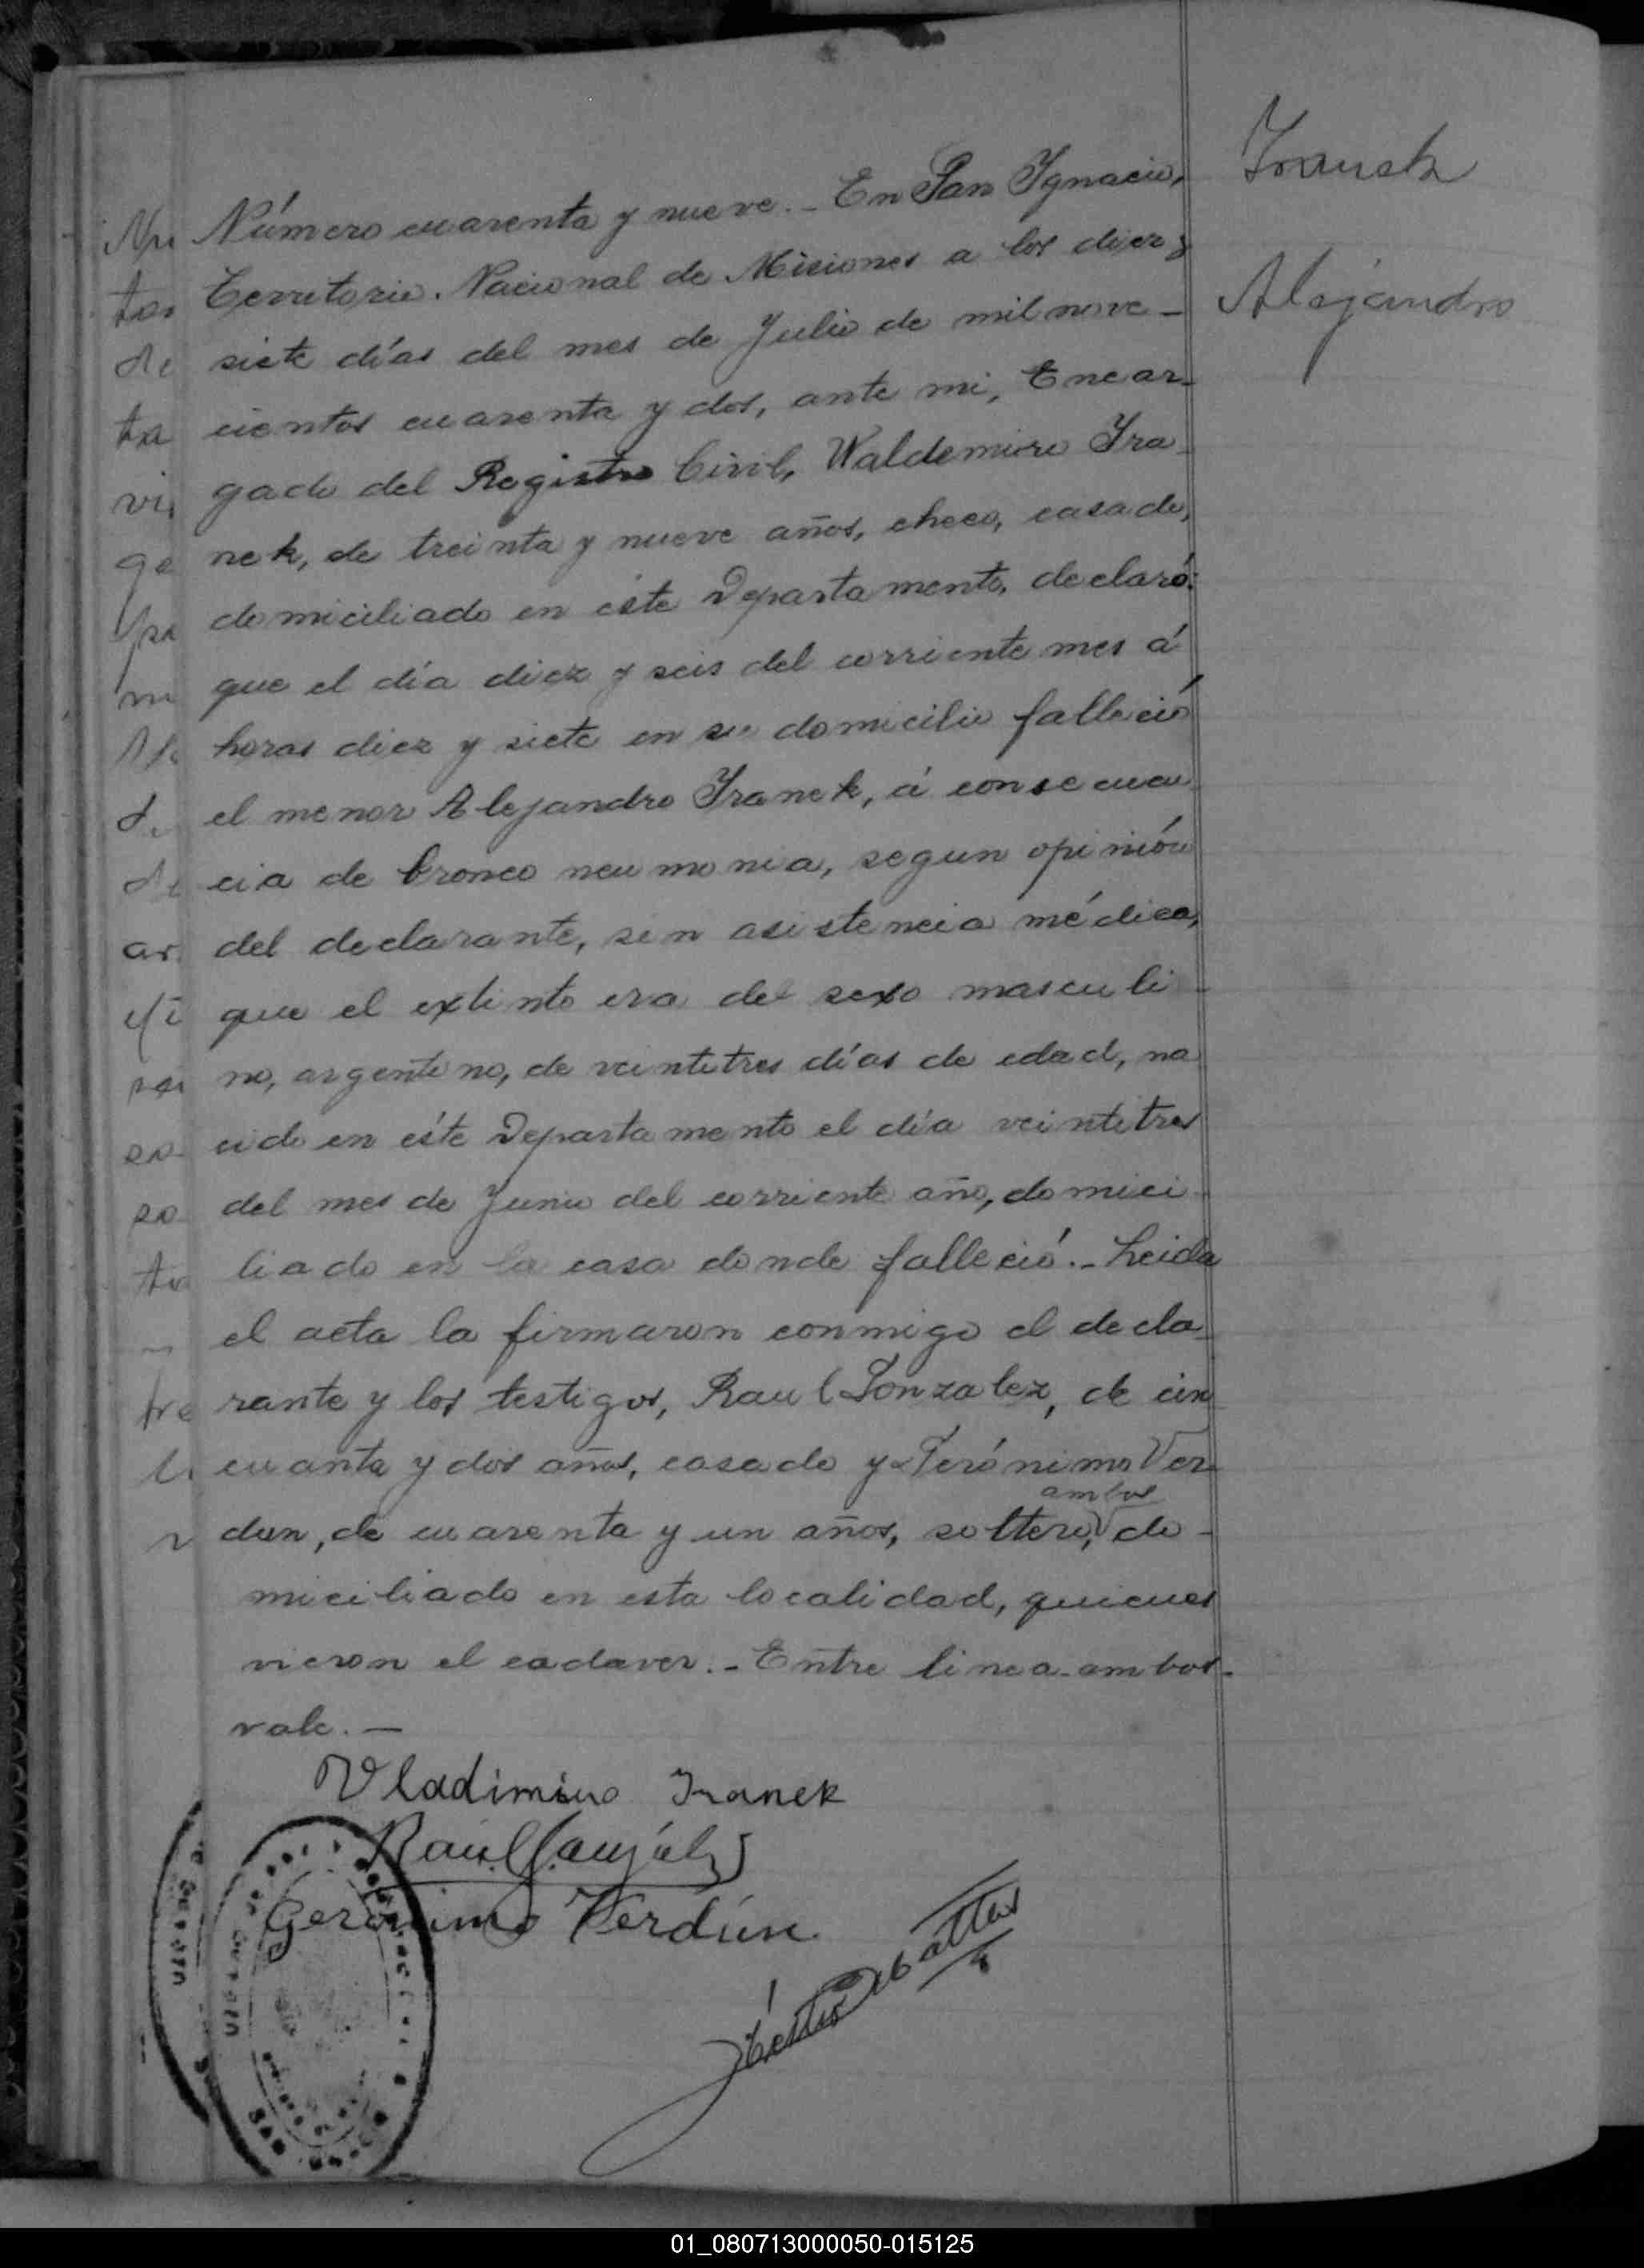 Franek
Alejandro
Número cuarenta y nueve.- En San Ignacio,
Territorio Nacional de Misiones a los diez y
siete días del mes de Julio de mil nove-
cientos cuarenta y dos, ante mi, Encar-
gado del Registro Civil, Waldemiro Fra-
nek, de treinta y nueve años, checo, casado,
domiciliado en éste Departamento, declaró:
que el día diez y seis del corriente mes á
horas diez y siete en su domicilio falleció
el menor Alejandro Franek, á consecuen
cia de bronco neumonia, segun opinión
del declarante, sin asistencia médica,
que el extinto era del sexo masculi-
no, argentino, de veintitres días de edad, na
cido en éste Departamento el día veintitres
del mes de Junio del corriente año, domici-
liado en la casa donde falleció.- Leida
el acta la firmaron conmigo el decla-
rante y los testigos, Raul Gonzalez, de cin
cuanta y dos años, casado y Gerónimo Ver-
ambos
dun, de cuarenta y un años, soltero, do-
miciliado en esta localidad, quienes
vieron el cadaver.- Entre linea-ambos-
vale.-
Vladimiro Franek
Raúl González
Gerónimo Verdún
01_080713000050-015125